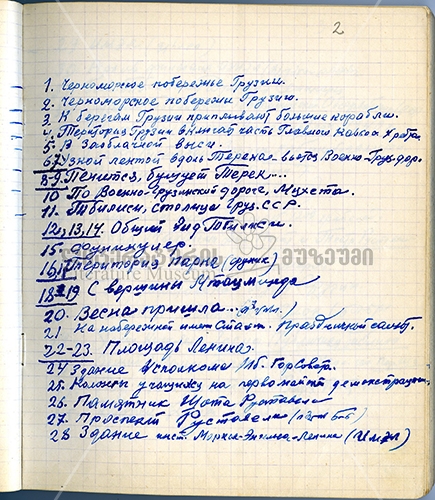 2
1. Черноморское побережье Грузии.
2. Черноморское побережье Грузии.
3. К берегам Грузии приплывают большие корабли.
4. Территория Грузии включает часть Главного Кавказ. Хребта
5. В Заоблачной выси.
6-7. Узкой лентой вдоль Терека вьется Военно-Груз. дор.
8-9. Пенится, бушует Терек...
10 По Военно-грузинской дороге, Мцхета.
11. Тбилиси, столица Груз. ССР.
12, 13, 14. Общий вид Тбилиси.
15. Фуникулер.
16, 17 Территория парка (фуник)
18-19 С вершины Мтацминда
20. Весна пришла...
21 На набережной имени Сталин. праздничный салют.
22-23. Площадь Ленина.
24 Здание Исполкома Тб. ГорСовет.
25. Колонны учащихся на первомайской демонстрации
26. Памятник Шота Руставели
27. Проспект Руставели
28 Здание инст. Маркса-Энгельса-Ленина (имэл)
ლიტერატურის მუზეუმი
Literature Museum